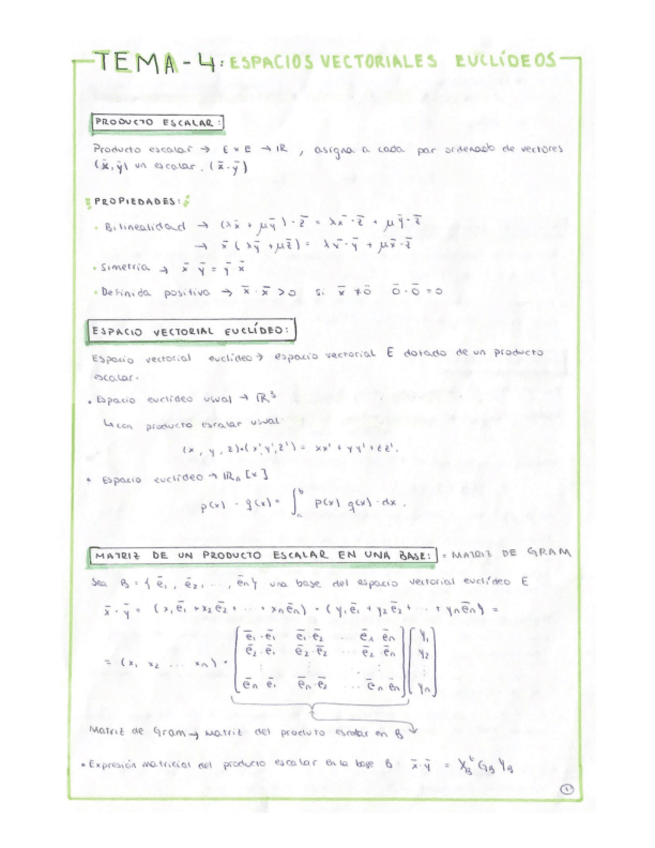 TEMA-4: ESPACIOS VECTORIALES EUCLÍDEOS
PRODUCTO ESCALAR:
Producto escalar → E × E → IR , asigna a cada par ordenado de vectores
(x̄,ȳ) un escalar. (x̄·ȳ)
PROPIEDADES:
· Bilinealidad → (λx̄ + μȳ)·z̄ = λx̄·z̄ + μȳ·z̄
→ x̄(λȳ + μz̄) = λx̄·ȳ + μx̄·z̄
· Simetría → x̄ ȳ = ȳ x̄
· Definida positiva → x̄·x̄ >0 si x̄ ≠ 0̄ 0̄·0̄ = 0
ESPACIO VECTORIAL EUCLÍDEO:
Espacio vectorial euclídeo → espacio vectorial E dotado de un producto
escalar.
• Espacio euclídeo usual → IR³
↳ con producto escalar usual.
(x, y, z)·(x',y',z') = xx' + yy' + zz'.
• Espacio euclídeo → IRn [x]
p(x) · q(x) = ∫ₐᵇ p(x) q(x)·dx.
MATRIZ DE UN PRODUCTO ESCALAR EN UNA BASE: = MATRIZ DE GRAM
Sea B = { ē₁, ē₂, ..., ēn} una base del espacio vectorial euclídeo E
x̄·ȳ = (x₁ē₁ + x₂ē₂ + ··· + xnēn) · (y₁ē₁ + y₂ē₂ + ··· + ynēn) =
ē₁·ē₁ ē₁·ē₂ ... ē₁ ēn y₁
ē₂·ē₁ ē₂·ē₂ ... ē₂ ēn y₂
= (x₁ x₂ ... xn) · ⋮ ⋮ ⋮ ⋮
ēn ē₁ ēn·ē₂ ... ēn ēn yn
Matriz de Gram → matriz del producto escalar en B
• Expresión matricial del producto escalar en la base B: x̄·ȳ = X_Bᵗ G_B Y_B
1